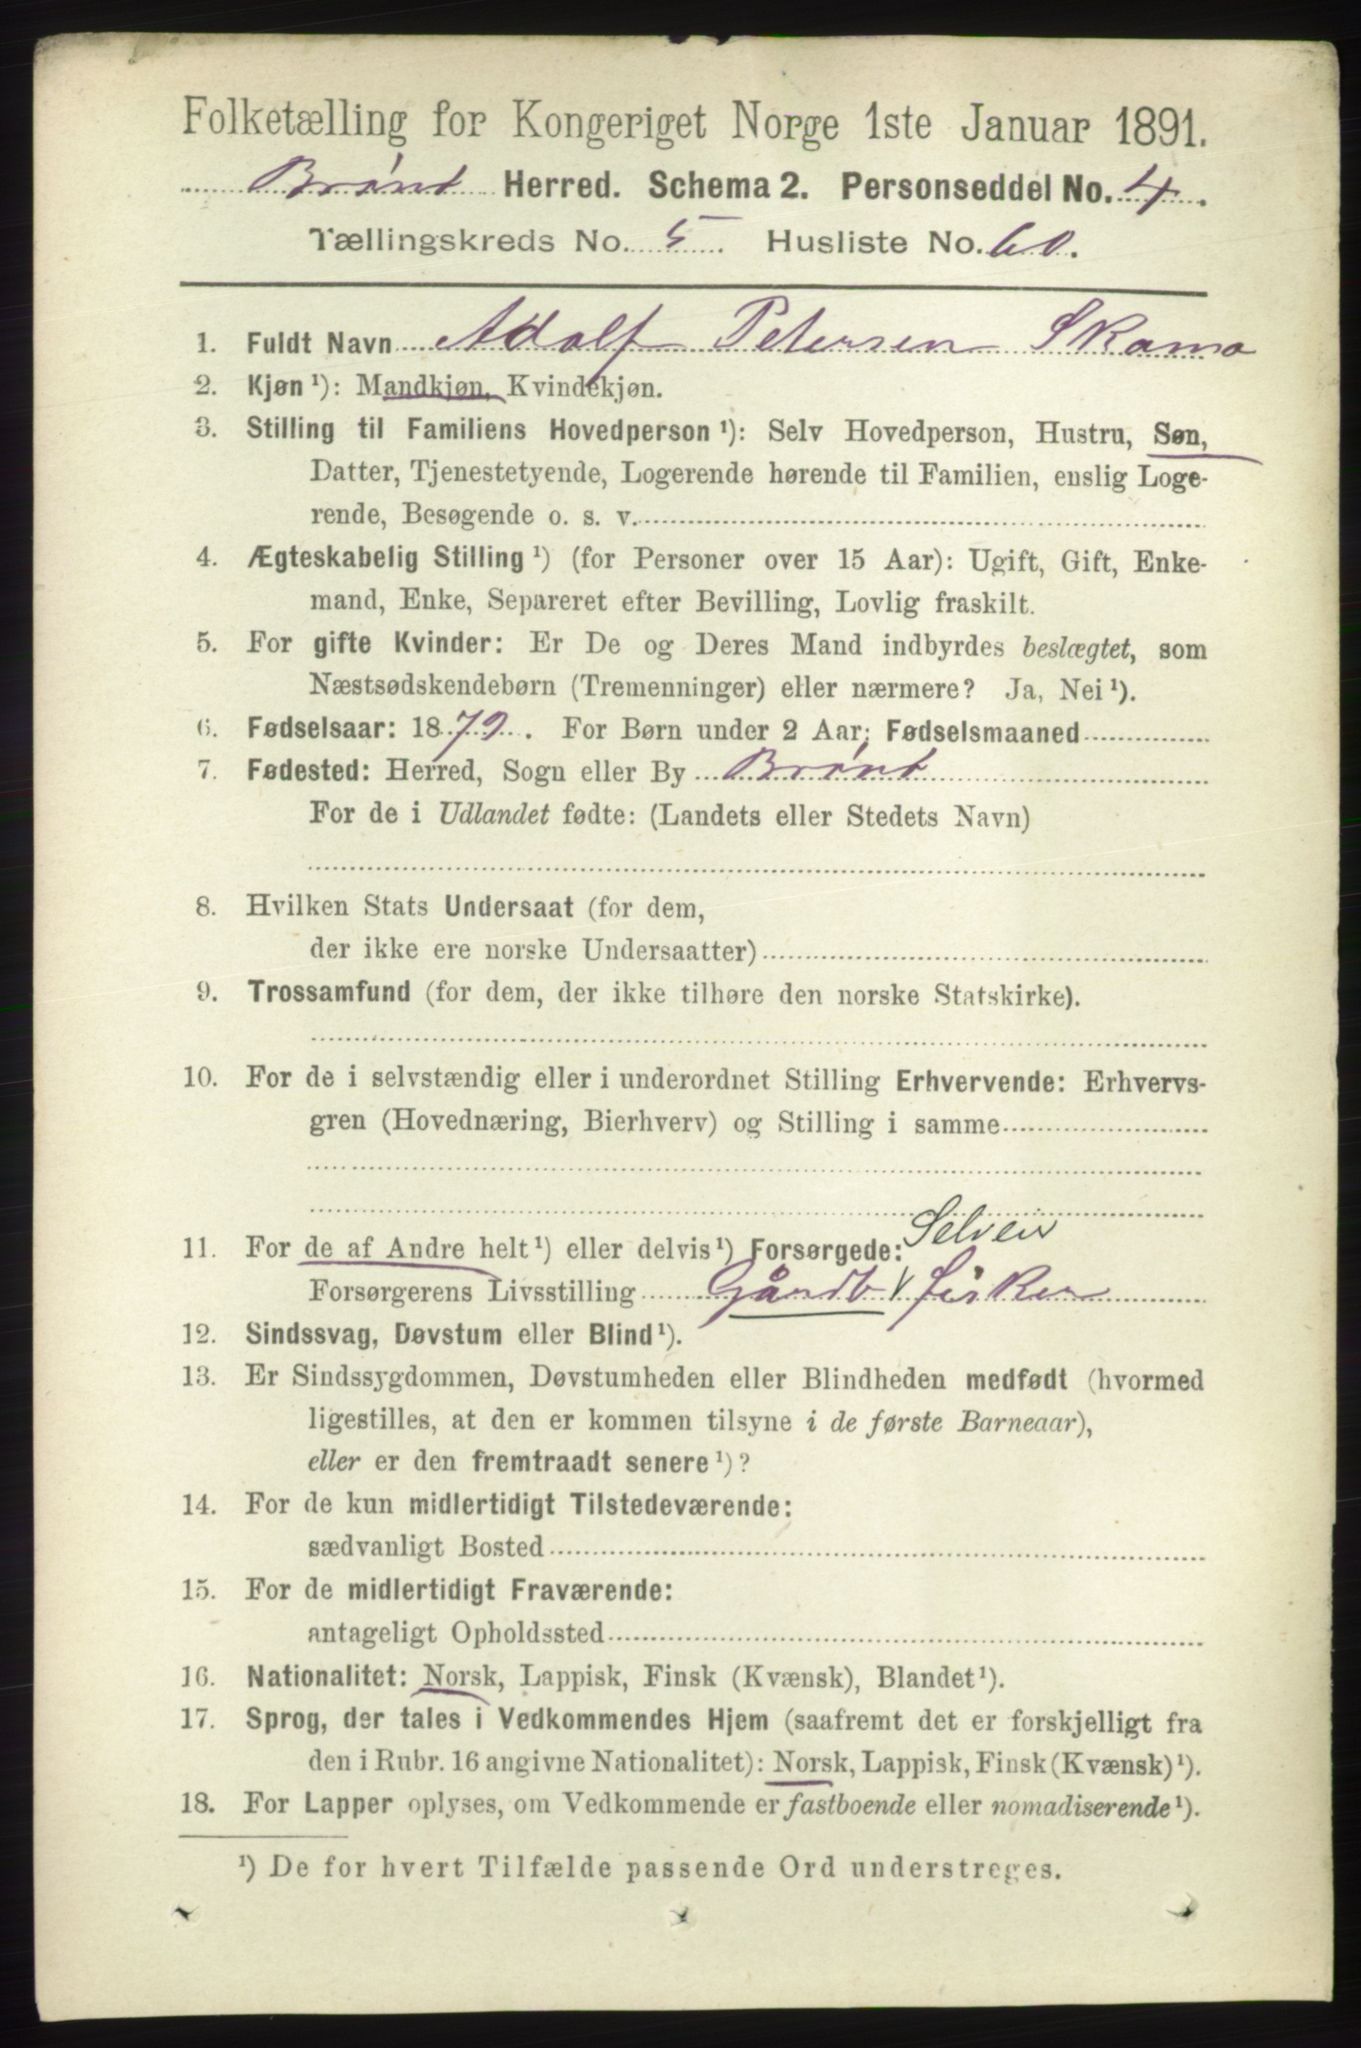 Folketælling for Kongeriget Norge 1ste Januar 1891.
Brönö Herred. Schema 2. Personseddel No. 4.
Tællingskreds No. 5. Husliste No. 60.
1. Fuldt Navn Adolf Petersen
2. Kjøn ¹): Mandkjøn, Kvindekjøn.
3. Stilling til Familiens Hovedperson ¹): Selv Hovedperson, Hustru, Søn,
Datter, Tjenestetyende, Logerende hørende til Familien, enslig Loge-
rende, Besøgende o. s. v.
4. Ægteskabelig Stilling ¹) (for Personer over 15 Aar): Ugift, Gift, Enke-
mand, Enke, Separeret efter Bevilling, Lovlig fraskilt.
5. For gifte Kvinder: Er De og Deres Mand indbyrdes beslægtet, som
Næstsødskendebørn (Tremenninger) eller nærmere? Ja, Nei ¹).
6. Fødselsaar: 1879. For Børn under 2 Aar: Fødselsmaaned
7. Fødested: Herred, Sogn eller By Brönö
For de i Udlandet fødte: (Landets eller Stedets Navn)
8. Hvilken Stats Undersaat (for dem,
der ikke ere norske Undersaatter)
9. Trossamfund (for dem, der ikke tilhøre den norske Statskirke).
10. For de i selvstændig eller i underordnet Stilling Erhvervende: Erhvervs-
gren (Hovednæring, Bierhverv) og Stilling i samme
11. For de af Andre helt ¹) eller delvis ¹) Forsørgede: Selveier
Forsørgerens Livsstilling Gårdb fisker
12. Sindssvag, Døvstum eller Blind ¹).
13. Er Sindssygdommen, Døvstumheden eller Blindheden medfødt (hvormed
ligestilles, at den er kommen tilsyne i de første Barneaar),
eller er den fremtraadt senere ¹)?
14. For de kun midlertidigt Tilstedeværende:
sædvanligt Bosted
15. For de midlertidigt Fraværende:
antageligt Opholdssted
16. Nationalitet: Norsk, Lappisk, Finsk (Kvænsk), Blandet ¹).
17. Sprog, der tales i Vedkommendes Hjem (saafremt det er forskjelligt fra
den i Rubr. 16 angivne Nationalitet): Norsk, Lappisk, Finsk (Kvænsk) ¹).
18. For Lapper oplyses, om Vedkommende er fastboende eller nomadiserende ¹).
¹) De for hvert Tilfælde passende Ord understreges.